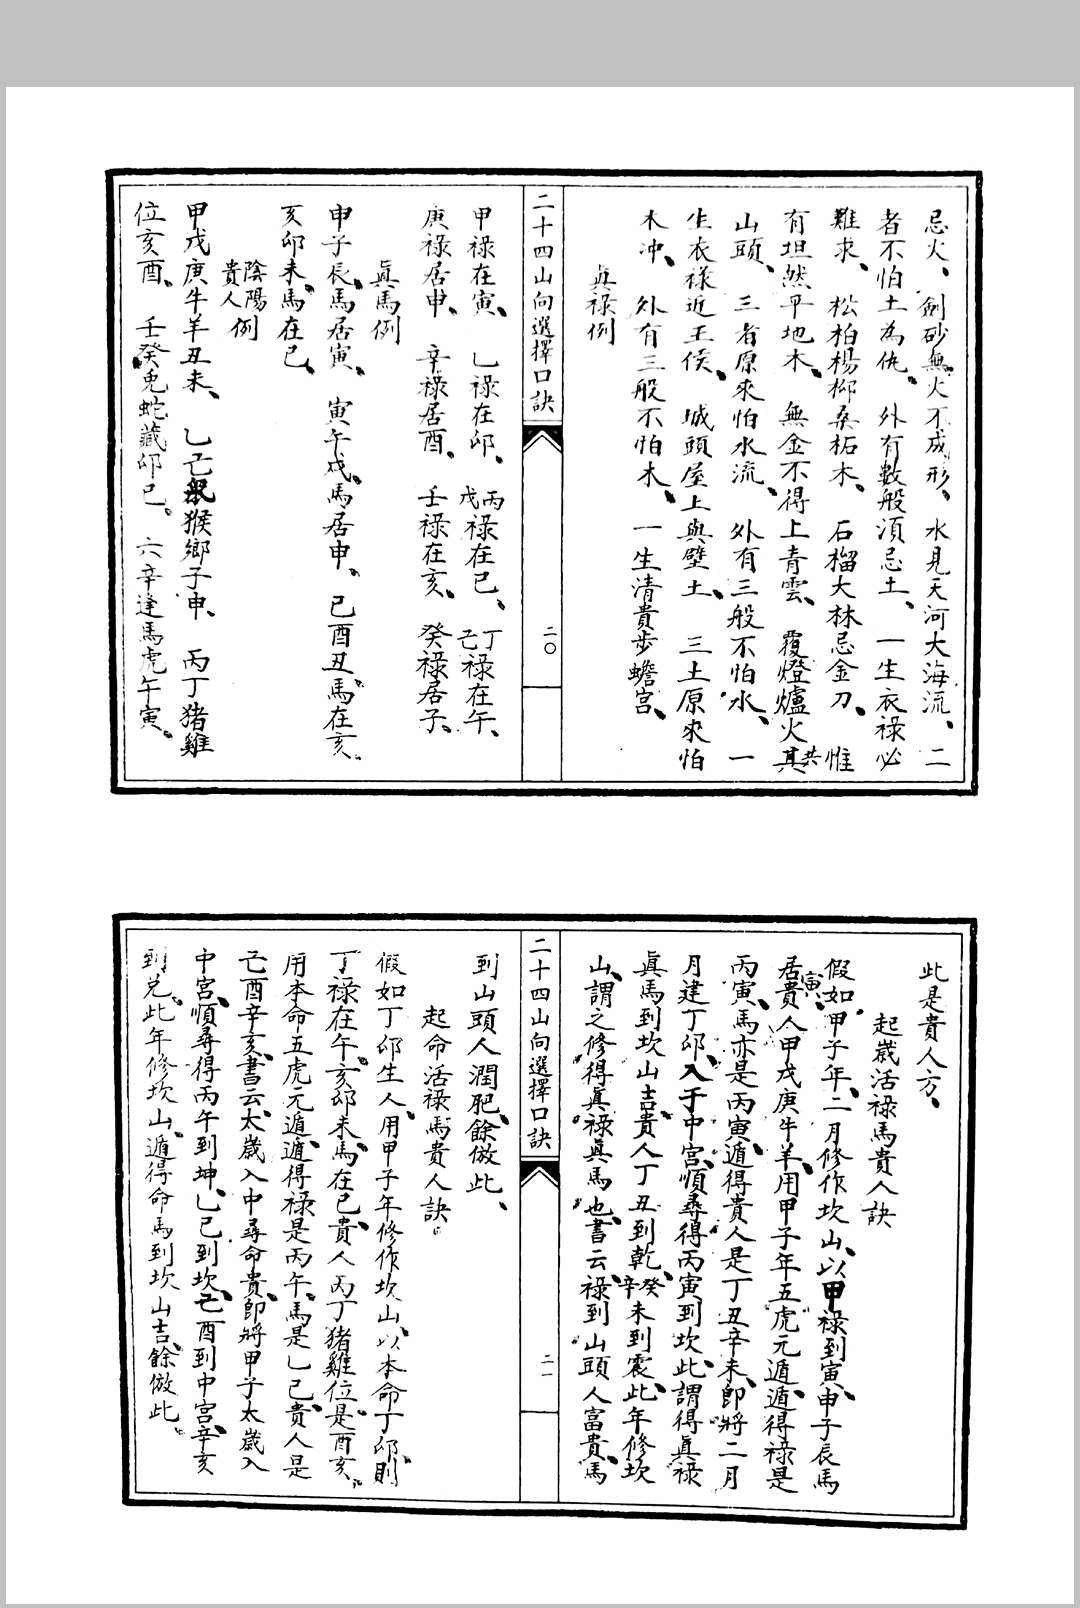 忌火、劍砂無火不成形、水見天河大海流、二
者不怕土為仇、外有數般須忌土、一生衣祿必
難求、松柏楊柳桑柘木、石榴大林忌金刀、惟
有坦然平地木、無金不得上青雲、覆燈爐火其共
山頭、三者原來怕水流、外有三般不怕水、一
生衣祿近王侯、城頭屋上與壁土、三土原來怕
木冲、外有三般不怕木、一生清貴步蟾宮、
眞祿例
二十四山向選擇口訣
二〇
甲祿在寅、乙祿在卯、丙戊祿在巳、丁己祿在午、
庚祿居申、辛祿居酉、壬祿在亥、癸祿居子、
眞馬例
申子辰、馬居寅、寅午戌、馬居申、巳酉丑、馬在亥。
亥卯未、馬在巳、
陰陽貴人例
甲戊庚牛羊丑未、乙己般猴鄉子申、丙丁猪雞
位亥酉、壬癸兎蛇藏卯巳。六辛逢馬虎午寅。
此是貴人方、
起歲活祿馬貴人訣
假如甲子年、二月修作坎山、以甲祿到寅、申子辰馬
居寅貴人甲戊庚牛羊、用甲子年五虎元遁、遁得祿是
丙寅、馬亦是丙寅、遁得貴人是丁丑辛未、即將二月
月建丁卯、入于中宮、順尋得丙寅到坎、此謂得眞祿
眞馬到坎山吉、貴人丁丑到乾、癸辛未到震、此年修坎
山、謂之修得眞祿眞馬也、書云、祿到山頭人富貴、馬
二十四山向選擇口訣
二一
到山頭人潤肥、餘倣此、
起命活祿馬貴人訣。
假如丁卯生人、用甲子年修作坎山、以本命丁卯、則
丁祿在午、亥卯未、馬在巳、貴人丙丁猪雞位、是酉亥。
用本命五虎元遁、遁得祿是丙午、馬是乙巳、貴人是
己酉辛亥、書云、太歲入中尋命貴、卽將甲子太歲入
中宮、順尋得丙午到坤、乙巳到坎、己酉到中宮、辛亥
到兌。此年修坎山、遁得命馬到坎山吉、餘倣此。